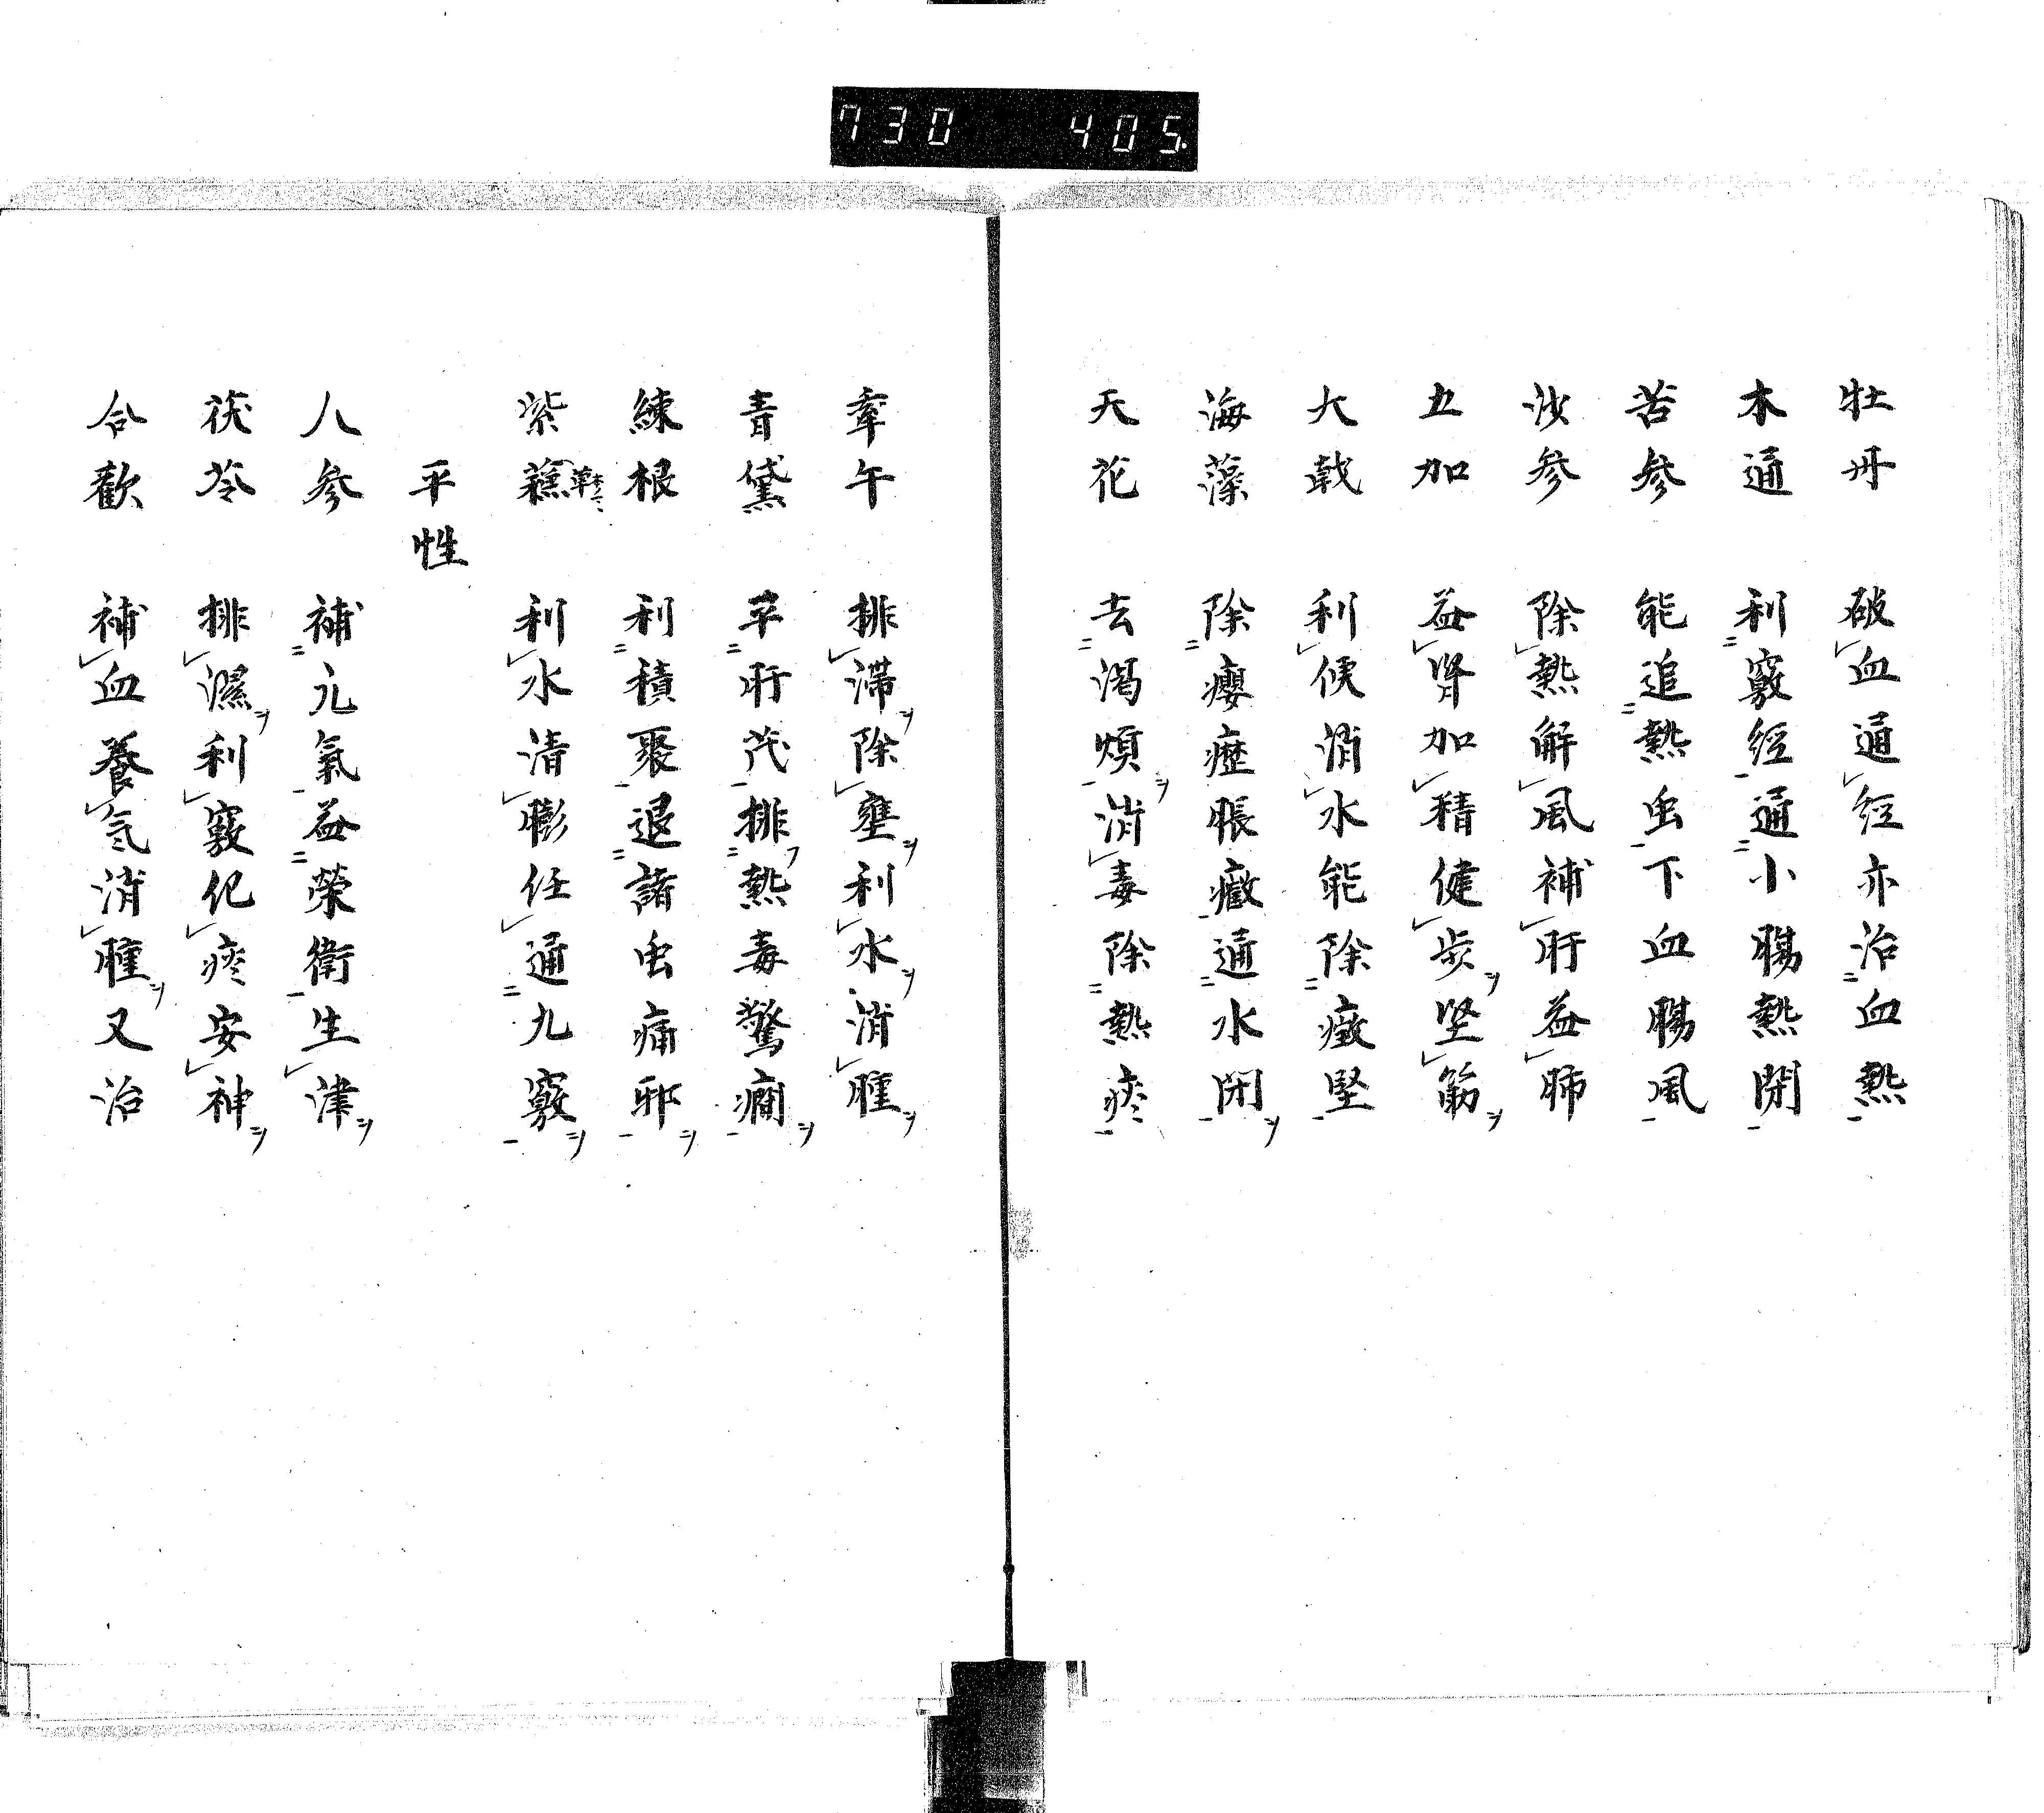 730 405
牡丹 破血通経亦治血熱
木通 利竅経通小腸熱閉
苦参 能追熱虫下血腸風
沙参 除熱解風補肝益肺
五加 益腎加精健歩坚筋
大戟 利候消水能除癥堅
海藻 除癭癧脹癥通水閉
天花 去渇煩消毒除熱痰
牽午 排滞除壅利水消腫
青黛 平肝茂排熱毒驚癇
練根 利積聚退諸虫痛邪
紫蘓 利水清膨任通九竅
平性
人参 補元氣益榮衛生津
茯苓 排濕利竅化痰安神
合歓 補血養气消腫又治